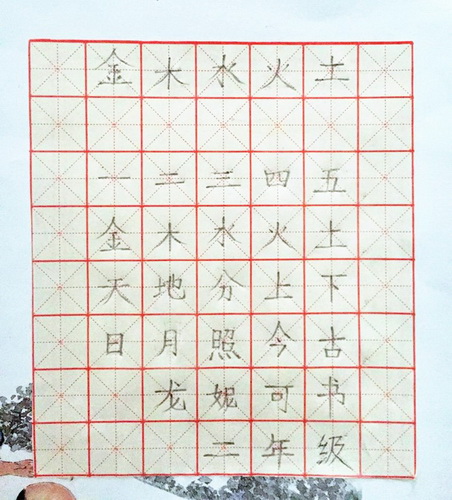 金木水火土
一二三四五
金木水火土
天地分上下
日月照今古
龙妮可书
二年级